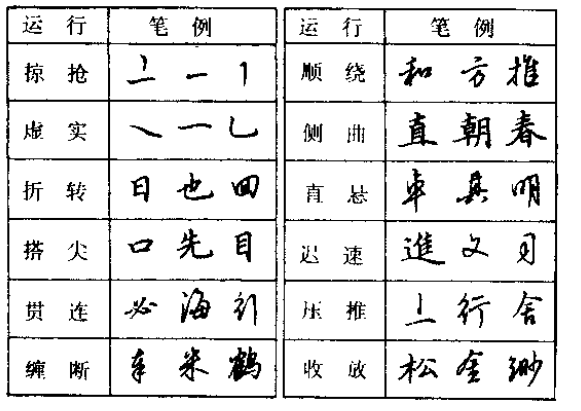 运行 笔例
掠抢 上 一 1
虚实 ㇏ 一 乚
折转 日 也 回
搭尖 口 先 目
贯连 必 海 引
缠断 车 米 鹤
运行 笔例
顺绕 和 方 推
侧曲 直 朝 春
直悬 卓 真 明
迟速 進 文 月
压推 上 行 舍
收放 松 金 缈